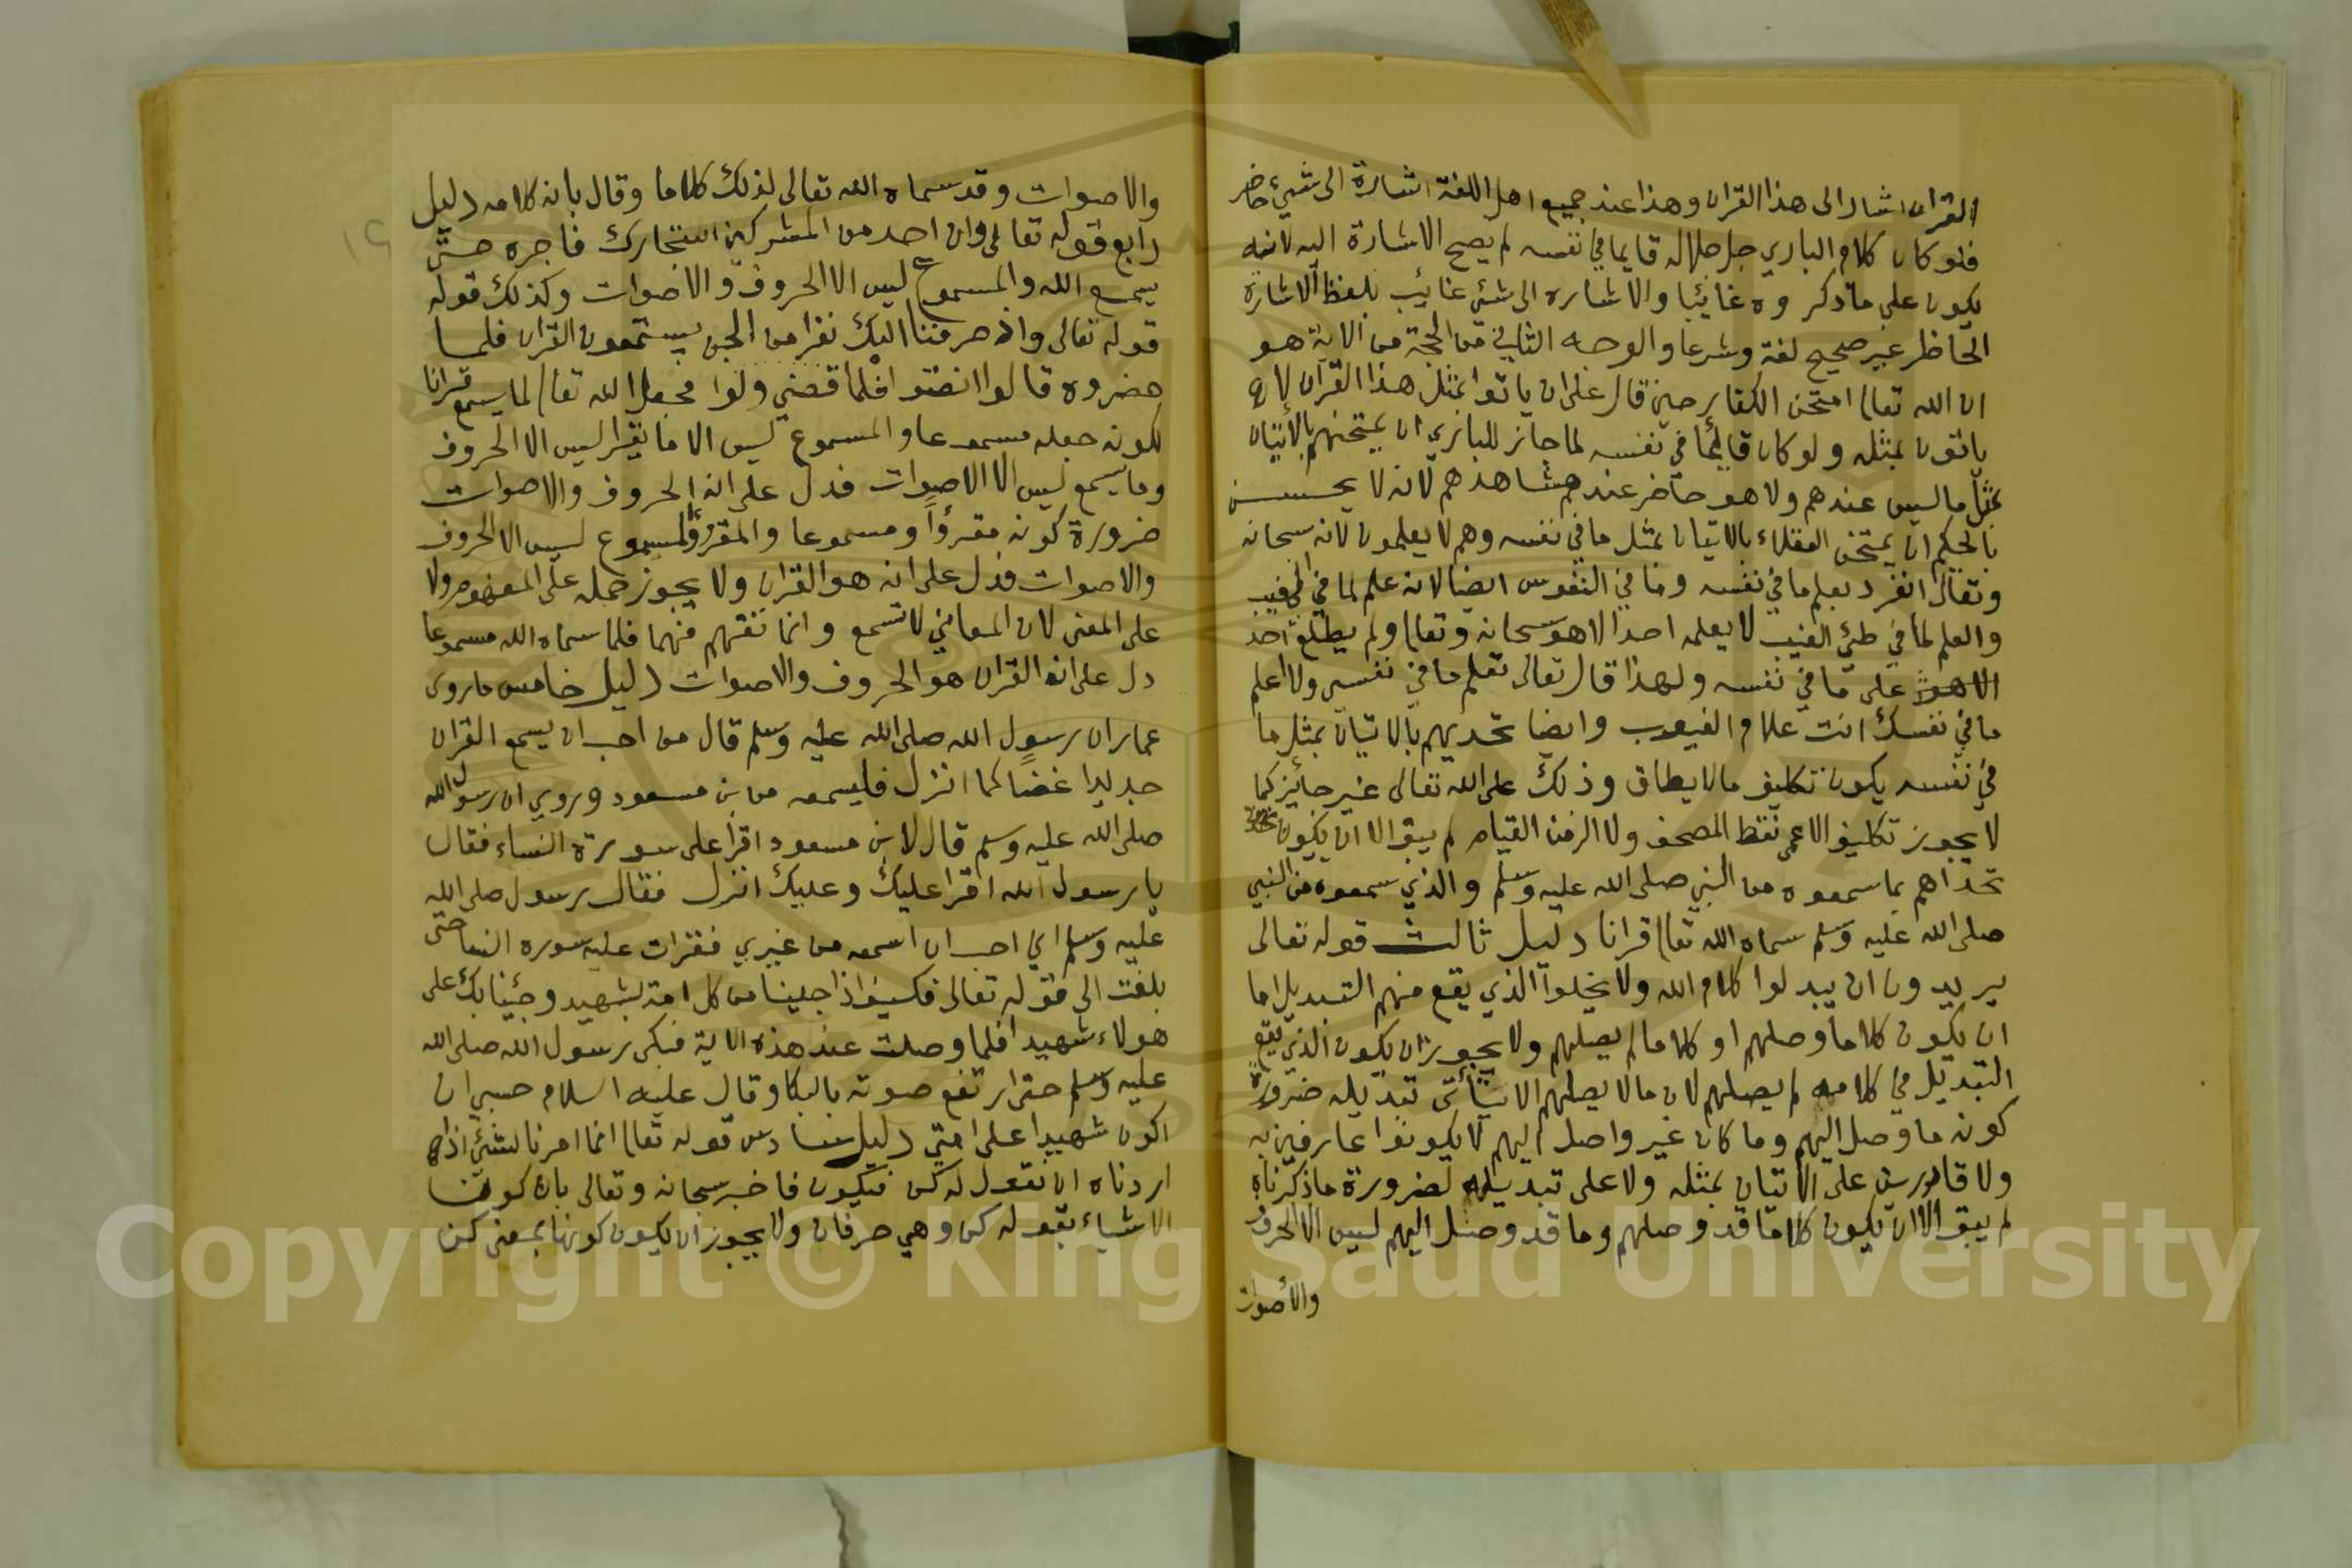 القران اشار الى هذا القران وهذا عند جميع اهل اللغة اشارة الى شيء حاضر
فلو كان كلام الباري جل جلاله قايما في نفسه لم يصح الاشارة اليه لانه
يكون على ما ذكروه غائبا والاشاره الى شئ غائب بلفظ الاشارة
الحاظر غير صحيح لغة وشرعا والوجه الثاني من الحجة من الاية هو
ان الله تعالى امتحن الكفار حين قال على ان ياتوا بمثل هذا القرآن لا
ياتون بمثله ولو كان قائما في نفسه لما جاز للباري ان يمتحنهم بالاتيان
بمثل ما ليس عندهم ولا هو حاضر عندهم مشاهدهم لانه لا يحسن
بالحكيم ان يمتحن العقلاء بالاتيان بمثل ما في نفسه وهم لا يعلمون لانه سبحانه
وتعالى انفرد بعلم ما في نفسه وما في النفوس ايضا لانه علم لما في الغيب
والعلم لما في طي الغيب لا يعلمه احدا الا هو سبحانه وتعالى ولم يطلع احد
الا هو على ما في نفسه ولهذا قال تعالى تعلم ما في نفسي ولا اعلم
ما في نفسك انت علام الغيوب وايضا تحديهم بالاتيان بمثل ما
في نفسه يكون تكليف مالا يطاق وذلك على الله تعالى غير جائز كما
لا يجوز تكليف الاعمى نقط المصحف ولا الزمن القيام لم يبق الا ان يكون
تحداهم بما سمعوه من النبي صلى الله عليه وسلم والذي سمعوه من النبي
صلى الله عليه وسلم سماه الله تعالى قرانا دليل ثالث قوله تعالى
يريدون ان يبدلوا كلام الله ولا يخلوا الذي يقع منهم التبديل اما
ان يكون كلاما وصلهم او كلاما لم يصلهم ولا يجوز ان يكون الذي يقع
التبديل في كلامه لم يصلهم لان مالا يصلهم لا يتأتى تبديله ضرورة
كونه ما وصل اليهم وما كان غير واصل اليهم لا يكونوا عارفين به
ولا قادرين على الاتيان بمثله ولا على تبديله لضرورة ما ذكرناه
لم يبق الا ان يكون كلاما قد وصلهم وما قد وصل اليهم ليس الا الحروف
والأصوات
والاصوات وقد سماه الله تعالى لذلك كلاما وقال بانه كلامه دليل
رابع قوله تعالى وان احد من المشركين استجارك فاجره حتى
يسمع الله والمسموع ليس الا الحروف والاصوات وكذلك قوله
قوله تعالى واذ صرفنا اليك نفرا من الجن يستمعون القران فلما
حضروه قالوا انصتوا فلما قضي ولوا فجعل الله تعالى لما يسمع قرانا
لكونه جعله مسموعا والمسموع ليس الا ما يقرا ليس الا الحروف
وما يسمع ليس الا الاصوات فدل على انه الحروف والاصوات
ضرورة كونه مقرؤاً ومسموعا والمقرؤ المسموع ليس الا الحروف
والاصوات فدل على انه هو القران ولا يجوز حمله على المفهوم ولا
على المعنى لان المعاني لا تسمع وانما تفهم فهما فلما سماه الله مسموعا
دل على ان القران هو الحروف والاصوات دليل خامس ما روى
عمار ان رسول الله صلى الله عليه وسلم قال من احب ان يسمع القران
جديدا غضاً كما انزل فليسمعه من بن مسعود وروي ان رسول الله
صلى الله عليه وسلم قال لابن مسعود اقرا على سورة النساء فقال
يا رسول الله اقرا عليك وعليك انزل فقال رسول صلى الله
عليه وسلم اني احب ان اسمعه من غيري فقرات عليه سوره النسا حتى
بلغت الى قوله تعالى فكيف اذا جينا من كل امة بشهيد وجئنا بك على
هولاء شهيدا فلما وصلت عند هذه الاية فبكى رسول الله صلى الله
عليه وسلم حتى ارتفع صوته بالبكا وقال عليه السلام حسبي ان
اكون شهيدا على امتي دليل سادس قوله تعالى انما امرنا لشئ اذا
اردناه ان نقول له كن فيكون فاخبر سبحانه وتعالى بان كون
الاشياء بقوله كن وهي حرفان ولا يجوز ان يكون كونها بمعنى كن
Copyright © King Saud University